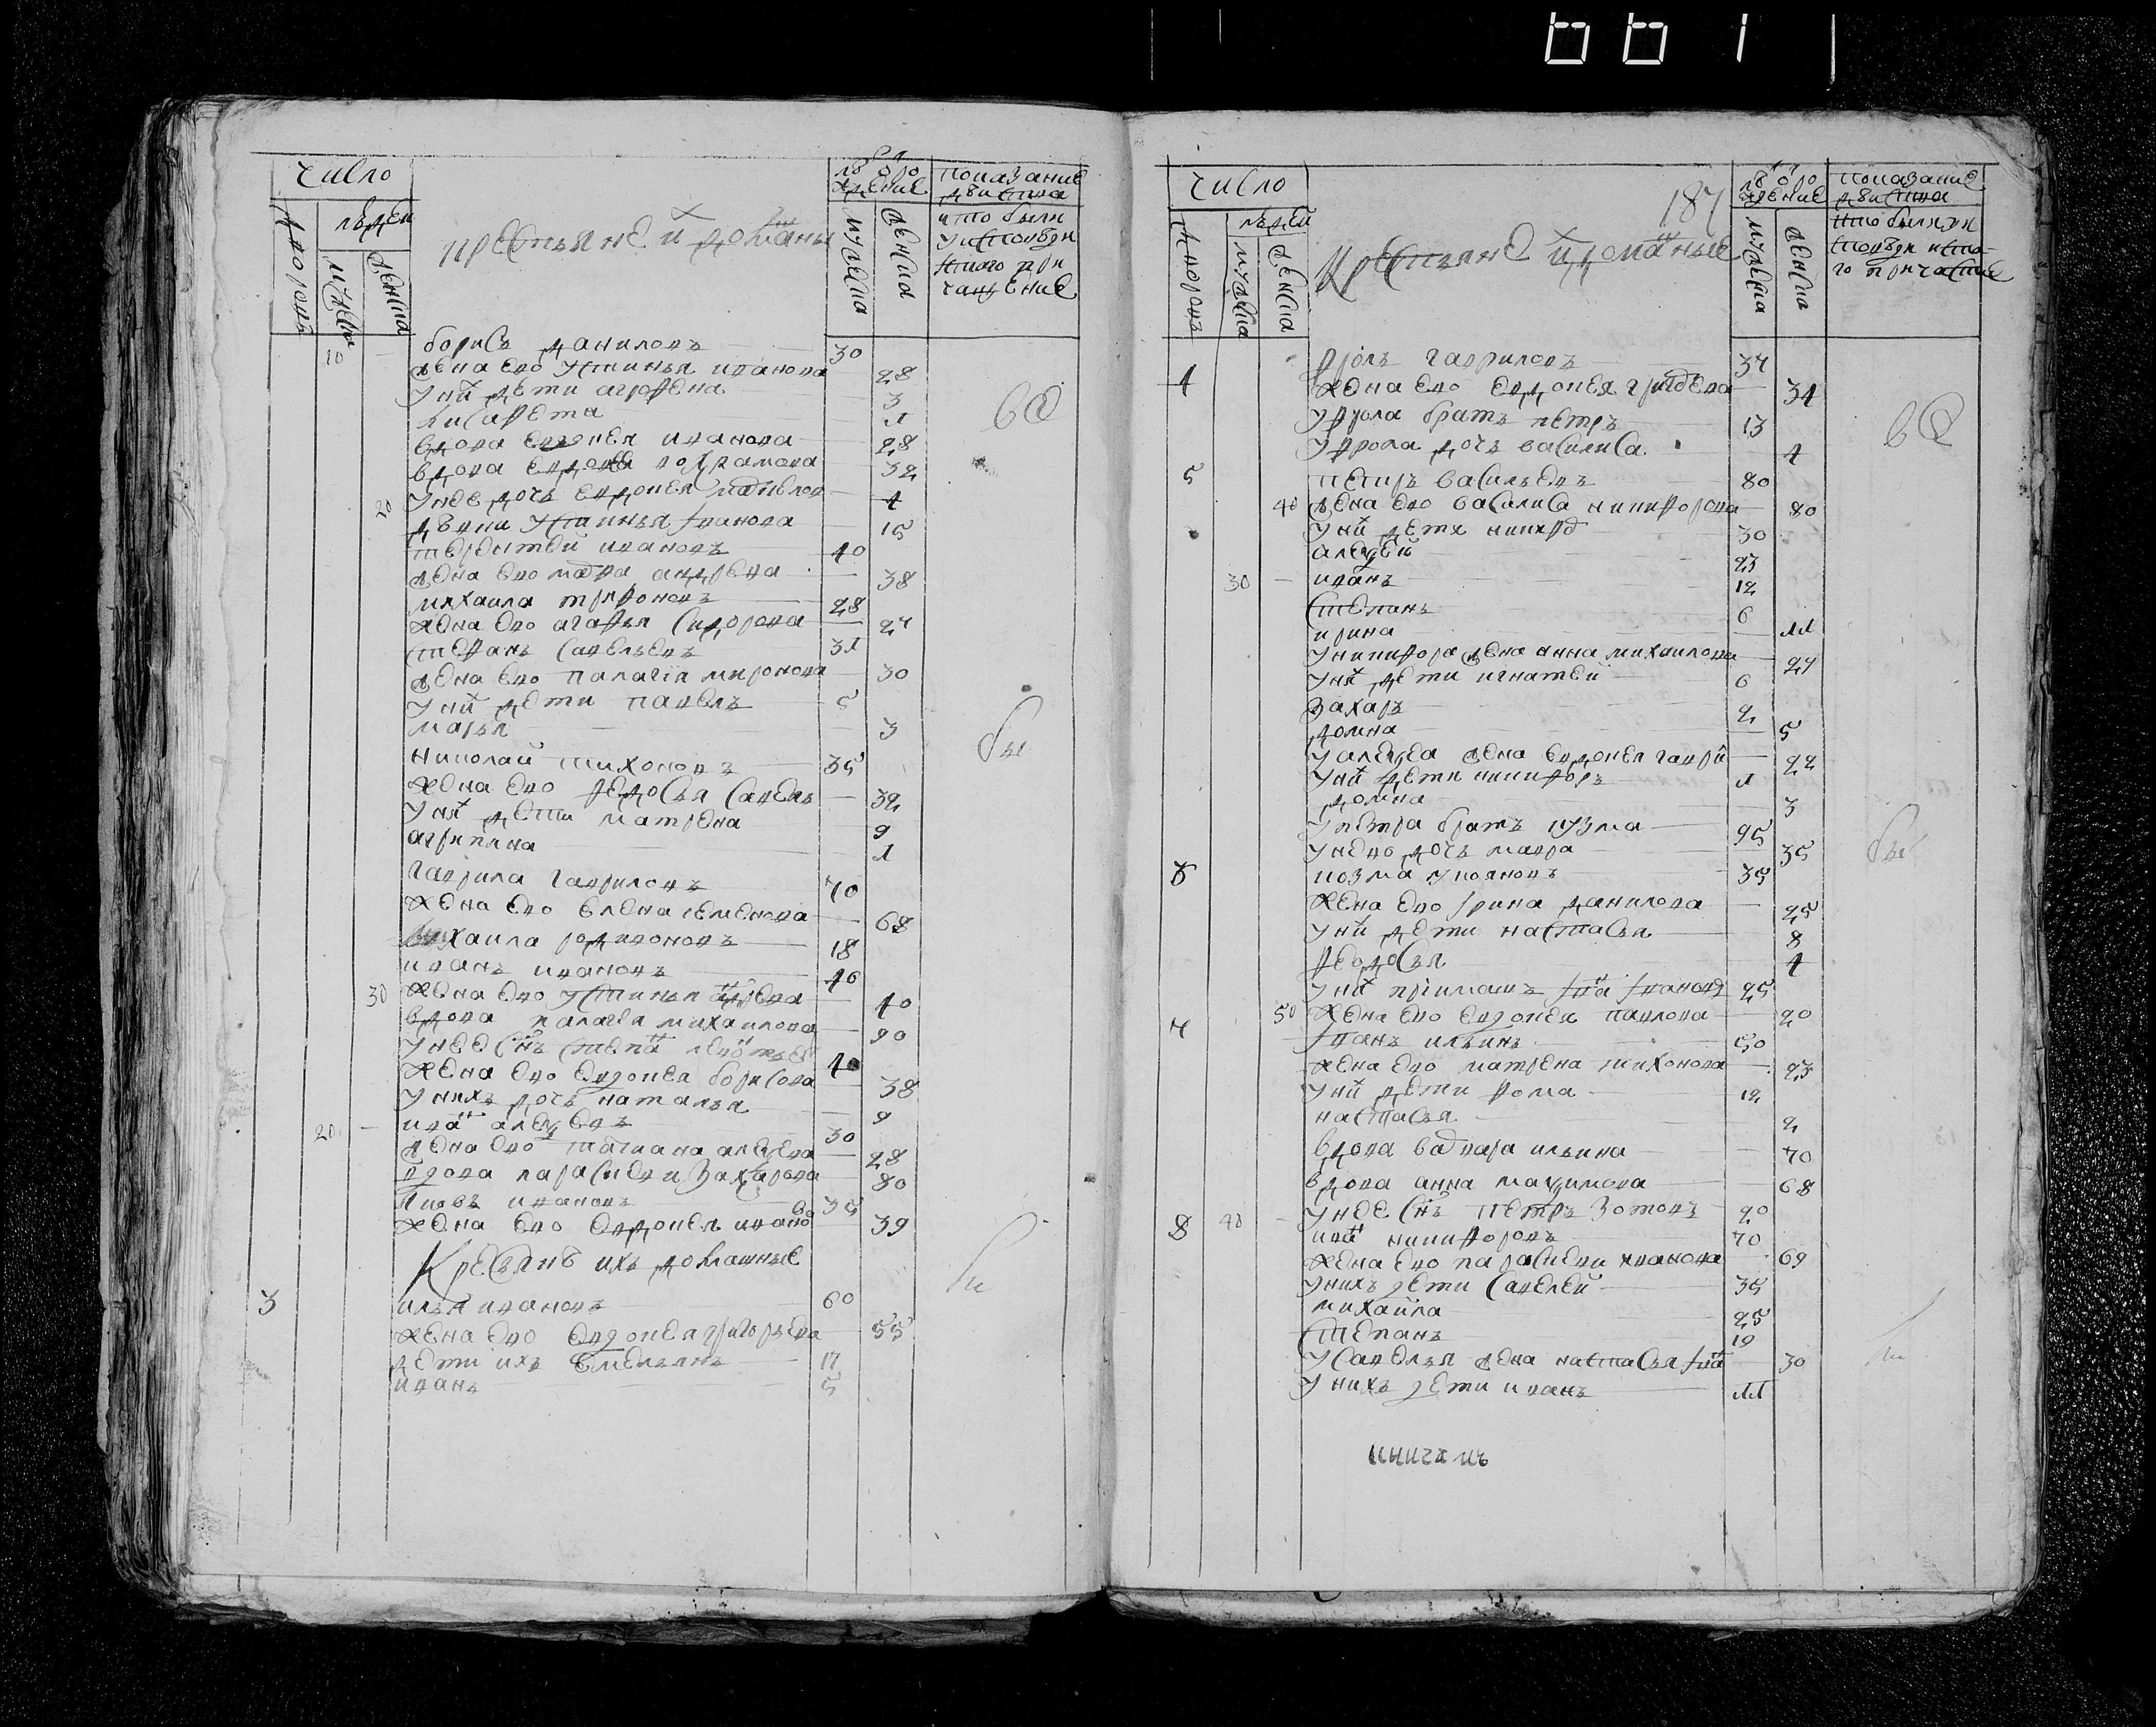 661
число
дворовъ
людей
мужеска
женска
крестьяне и˟ домашны
от рождение
мужеска
женска
показание действа
кто были
у исповеди
святаго при
чащение
10
борисъ даниловъ 30
жена ево устинья иванова 28
у них дети аграфена 3
лисафета 1
вдова евдокея иванова 28
вдова евдокея 32
20
у нее дочь евдокея 4
девки устинья иванова 15
терентей ивановъ 40
жена ево мавра андреева 38
михаила трифоновъ 28
жена ево агафья сидорова 27
стефанъ савельевъ 31
жена ево палагія миронова 30
у них дети павелъ 5
марья 3
николай тихоновъ 35
жена ево федосья савель 32
у них дети матрена 9
агрипина 1
гаврила гавриловъ 70
жена ево елена семенова 68
михаила родивоновъ 18
иванъ ивановъ 40
30
жена ево устинья 40
вдова палагея михаилова 90
у нее снъ 40
жена ево евдокея борисова 38
у нихъ дочь наталья 9
20
ива алексеевъ 30
жена ево татиана алексеева 28
вдова парасковия захарова 80
яковъ ивановъ 35
жена ево евдокея ивано 39
Кресьяне ихъ домашные
3
илья ивановъ 60
жена ево евдокея григорьева 55
дети ихъ емельянъ 17
иванъ 5
вс
бы
ли
187
число
дворовъ
людей
мужеска
женска
Крестьяне и домашные
от рождение
мужеска
женска
показание действа
кто были у исповеди и свята-
го причастие
4
фролъ гавриловъ 37
жена ево евдокея 34
у фрола братъ петръ 13
у фрола дочь василиса 4
5
петръ васильевъ 80
40
жена ево василиса никифорова 80
у них дети никифо 30
алексей 23
30
иванъ 12
степанъ 6
ирина 11
у никифора жена анна михаилова 27
у них дети игнатей 6
захаръ 2
домна 5
у алексея жена евдокея гаври 22
у них дети никифоръ 1
домна 3
у петра братъ кузма 95
у нево дочь мавра 35
6
козма 35
жена ево ирина данилова 25
у них дети настасья 8
федосья 4
у них приимашъ 25
50
жена ево евдокея павлова 20
7
иванъ ильинъ 50
жена ево матрена тихонова 23
у них дети фома 12
настасья 2
вдова варвара ильина 70
вдова анна максимова 68
40
у нее снъ петръ зотовъ 20
8
ива никифоровъ 70
жена ево парасковия иванова 69
у нихъ дети савелей 35
михайла 25
степанъ 19
у савелья жена настасья 30
у нихъ дети иванъ 11
вс
бы
ли